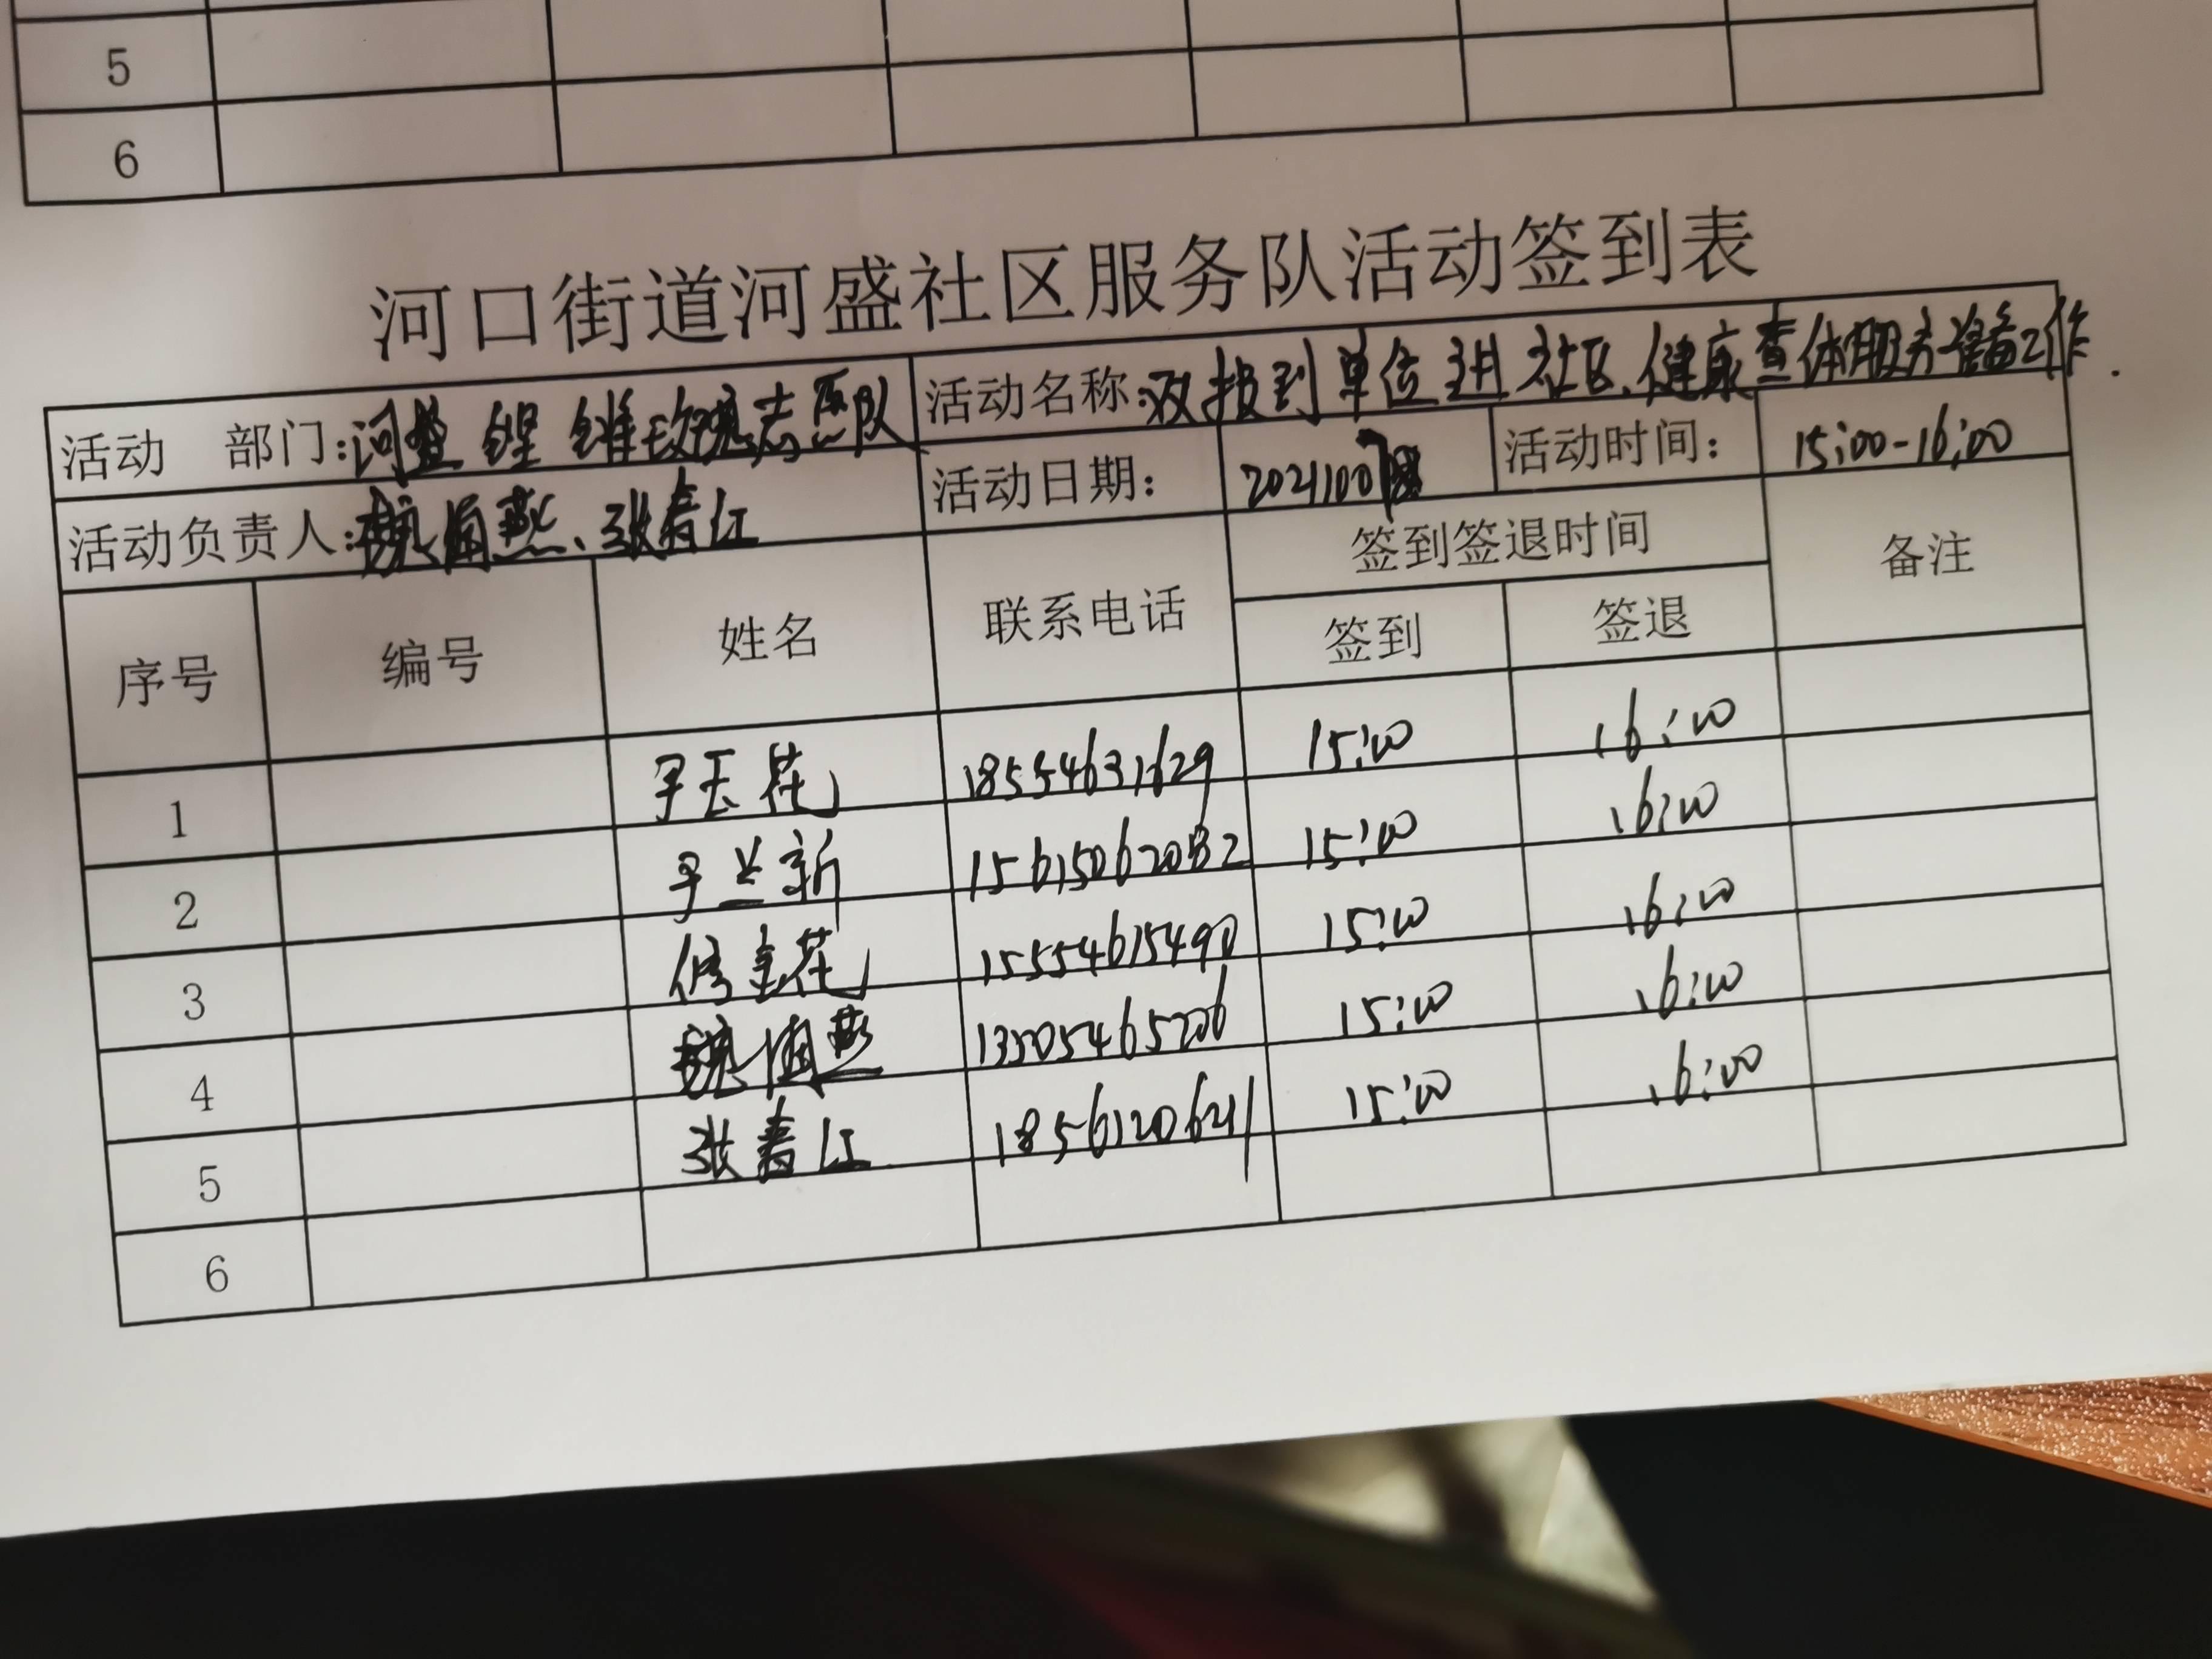 5
6
河口街道河盛社区服务队活动签到表
活动 部门: 河盛 志愿队 活动名称: 双报到单位进社区、健康查体服务准备工作.
活动负责人: 魏 燕、张春江 活动日期: 2021100 活动时间: 15:00-16:00
序号 编号 姓名 联系电话 签到签退时间 备注
签到 签退
1 玉花 18554631629 15:00 16:00
2 兰新 15:00 16:00
3 修 花 15554615490 15:00 16:00
4 魏 燕 15:00 16:00
5 张春江 18561206211 15:00 16:00
6